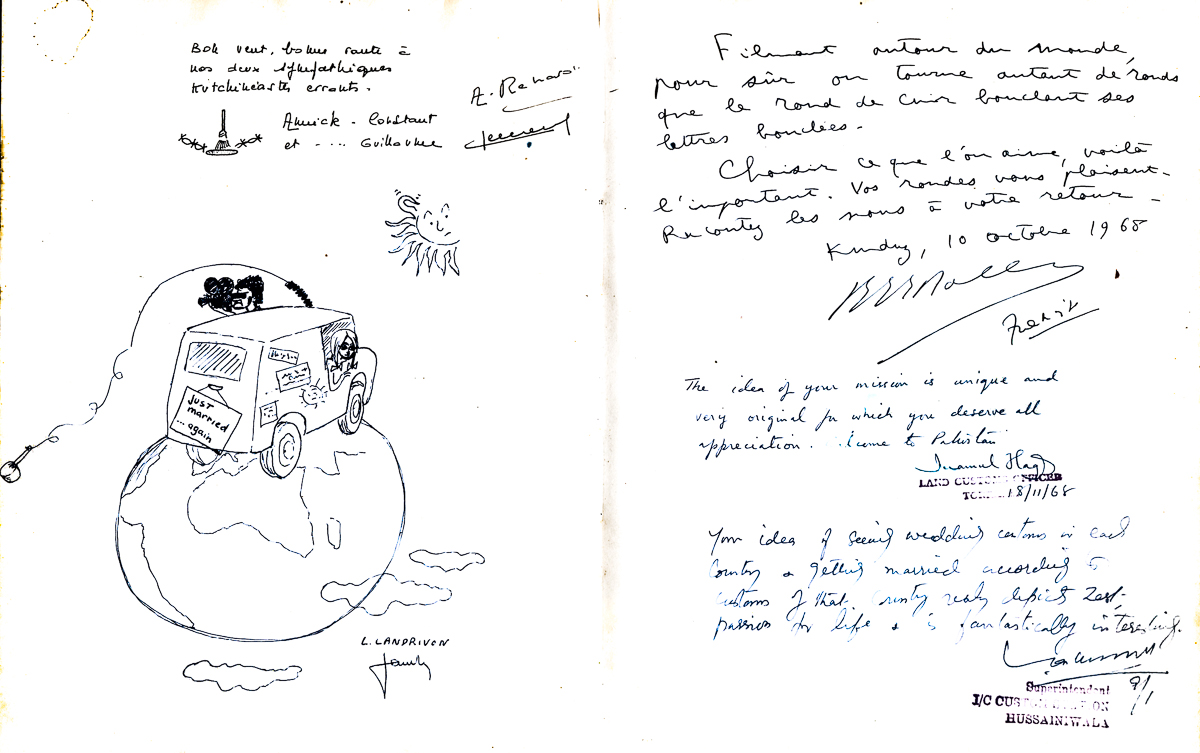 Bon vent, bonne route à
nos deux sympathiques
errants.
Annick - Constant
et - ... Guillaume
A. Renard
just
married
... again
L. LANDRIVON
Filmant autour du monde,
pour sûr on tourne autant de ronds
que le rond de cuir bouclant ses
lettres bouclées.
Choisir ce que l'on aime, voilà
l'important. Vos rondes vous plaisent.
Racontez les nous à votre retour.
Kunduz, 10 octobre 1968
The idea of your mission is unique and
very original for which you deserve all
appreciation. to Pakistan
Inamul Haq
LAND CUSTOMS OFFICER
18/11/68
Your idea of seeing wedding customs in each
Country & getting married according to
customs of that Country really depicts Zest,
passion for life & is fantastically interesting.
Superintendent
I/C
HUSSAINIWALA